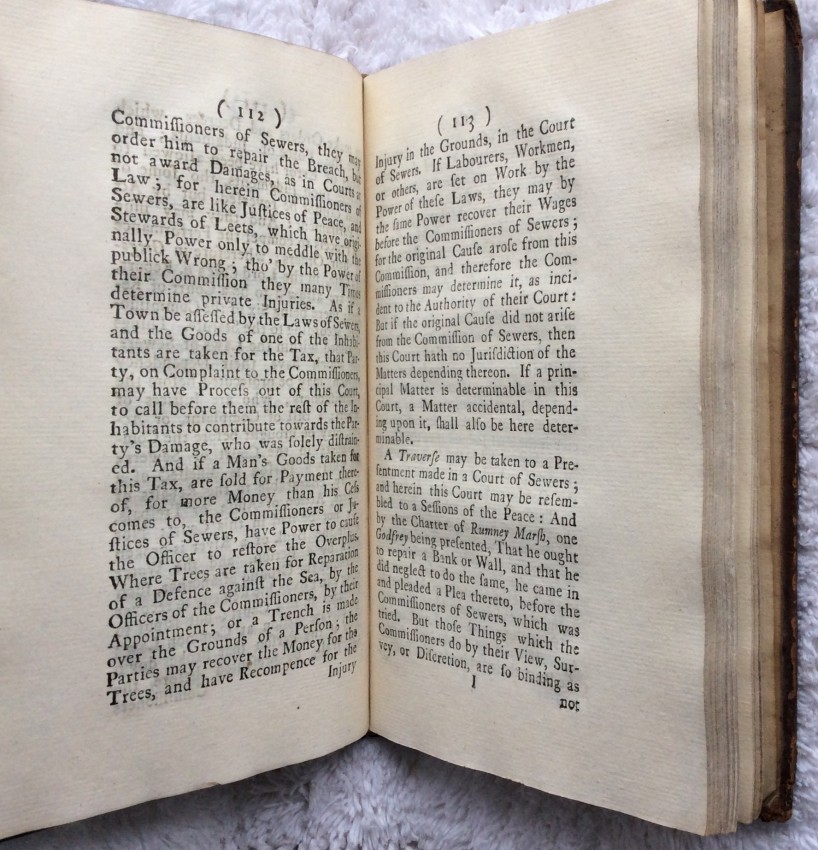 ( 112 )
Commiſſioners of Sewers, they may
order him to repair the Breach, but
not award Damages, as in Courts at
Law; for herein Commiſſioners of
Sewers, are like Juſtices of Peace, and
Stewards of Leets, which have origi-
nally Power only to meddle with the
publick Wrong; tho' by the Power of
their Commiſſion they many Times
determine private Injuries. As if a
Town be aſſeſſed by the Laws of Sewers,
and the Goods of one of the Inhabi-
tants are taken for the Tax, that Par-
ty, on Complaint to the Commiſſioners,
may have Proceſs out of this Court,
to call before them the reſt of the In-
habitants to contribute towards the Par-
ty's Damage, who was ſolely diſtrain-
ed. And if a Man's Goods taken for
this Tax, are ſold for Payment there-
of, for more Money than his Ceſs
comes to, the Commiſſioners or Ju-
ſtices of Sewers, have Power to cauſe
the Officer to reſtore the Overplus.
Where Trees are taken for Reparation
of a Defence againſt the Sea, by the
Officers of the Commiſſioners, by their
Appointment; or a Trench is made
over the Grounds of a Perſon; the
Parties may recover the Money for the
Trees, and have Recompence for the
Injury
( 113 )
Injury in the Grounds, in the Court
of Sewers. If Labourers, Workmen,
or others, are ſet on Work by the
Power of theſe Laws, they may by
the ſame Power recover their Wages
before the Commiſſioners of Sewers;
for the original Cauſe aroſe from this
Commiſſion, and therefore the Com-
miſſioners may determine it, as inci-
dent to the Authority of their Court:
But if the original Cauſe did not ariſe
from the Commiſſion of Sewers, then
this Court hath no Juriſdiction of the
Matters depending thereon. If a prin-
cipal Matter is determinable in this
Court, a Matter accidental, depend-
ing upon it, ſhall alſo be here deter-
minable.
A Traverſe may be taken to a Pre-
ſentment made in a Court of Sewers;
and herein this Court may be reſem-
bled to a Seſſions of the Peace: And
by the Charter of Rumney Marſh, one
Godfrey being preſented, That he ought
to repair a Bank or Wall, and that he
did neglect to do the ſame, he came in
and pleaded a Plea thereto, before the
Commiſſioners of Sewers, which was
tried. But thoſe Things which the
Commiſſioners do by their View, Sur-
vey, or Diſcretion, are ſo binding as
I
not